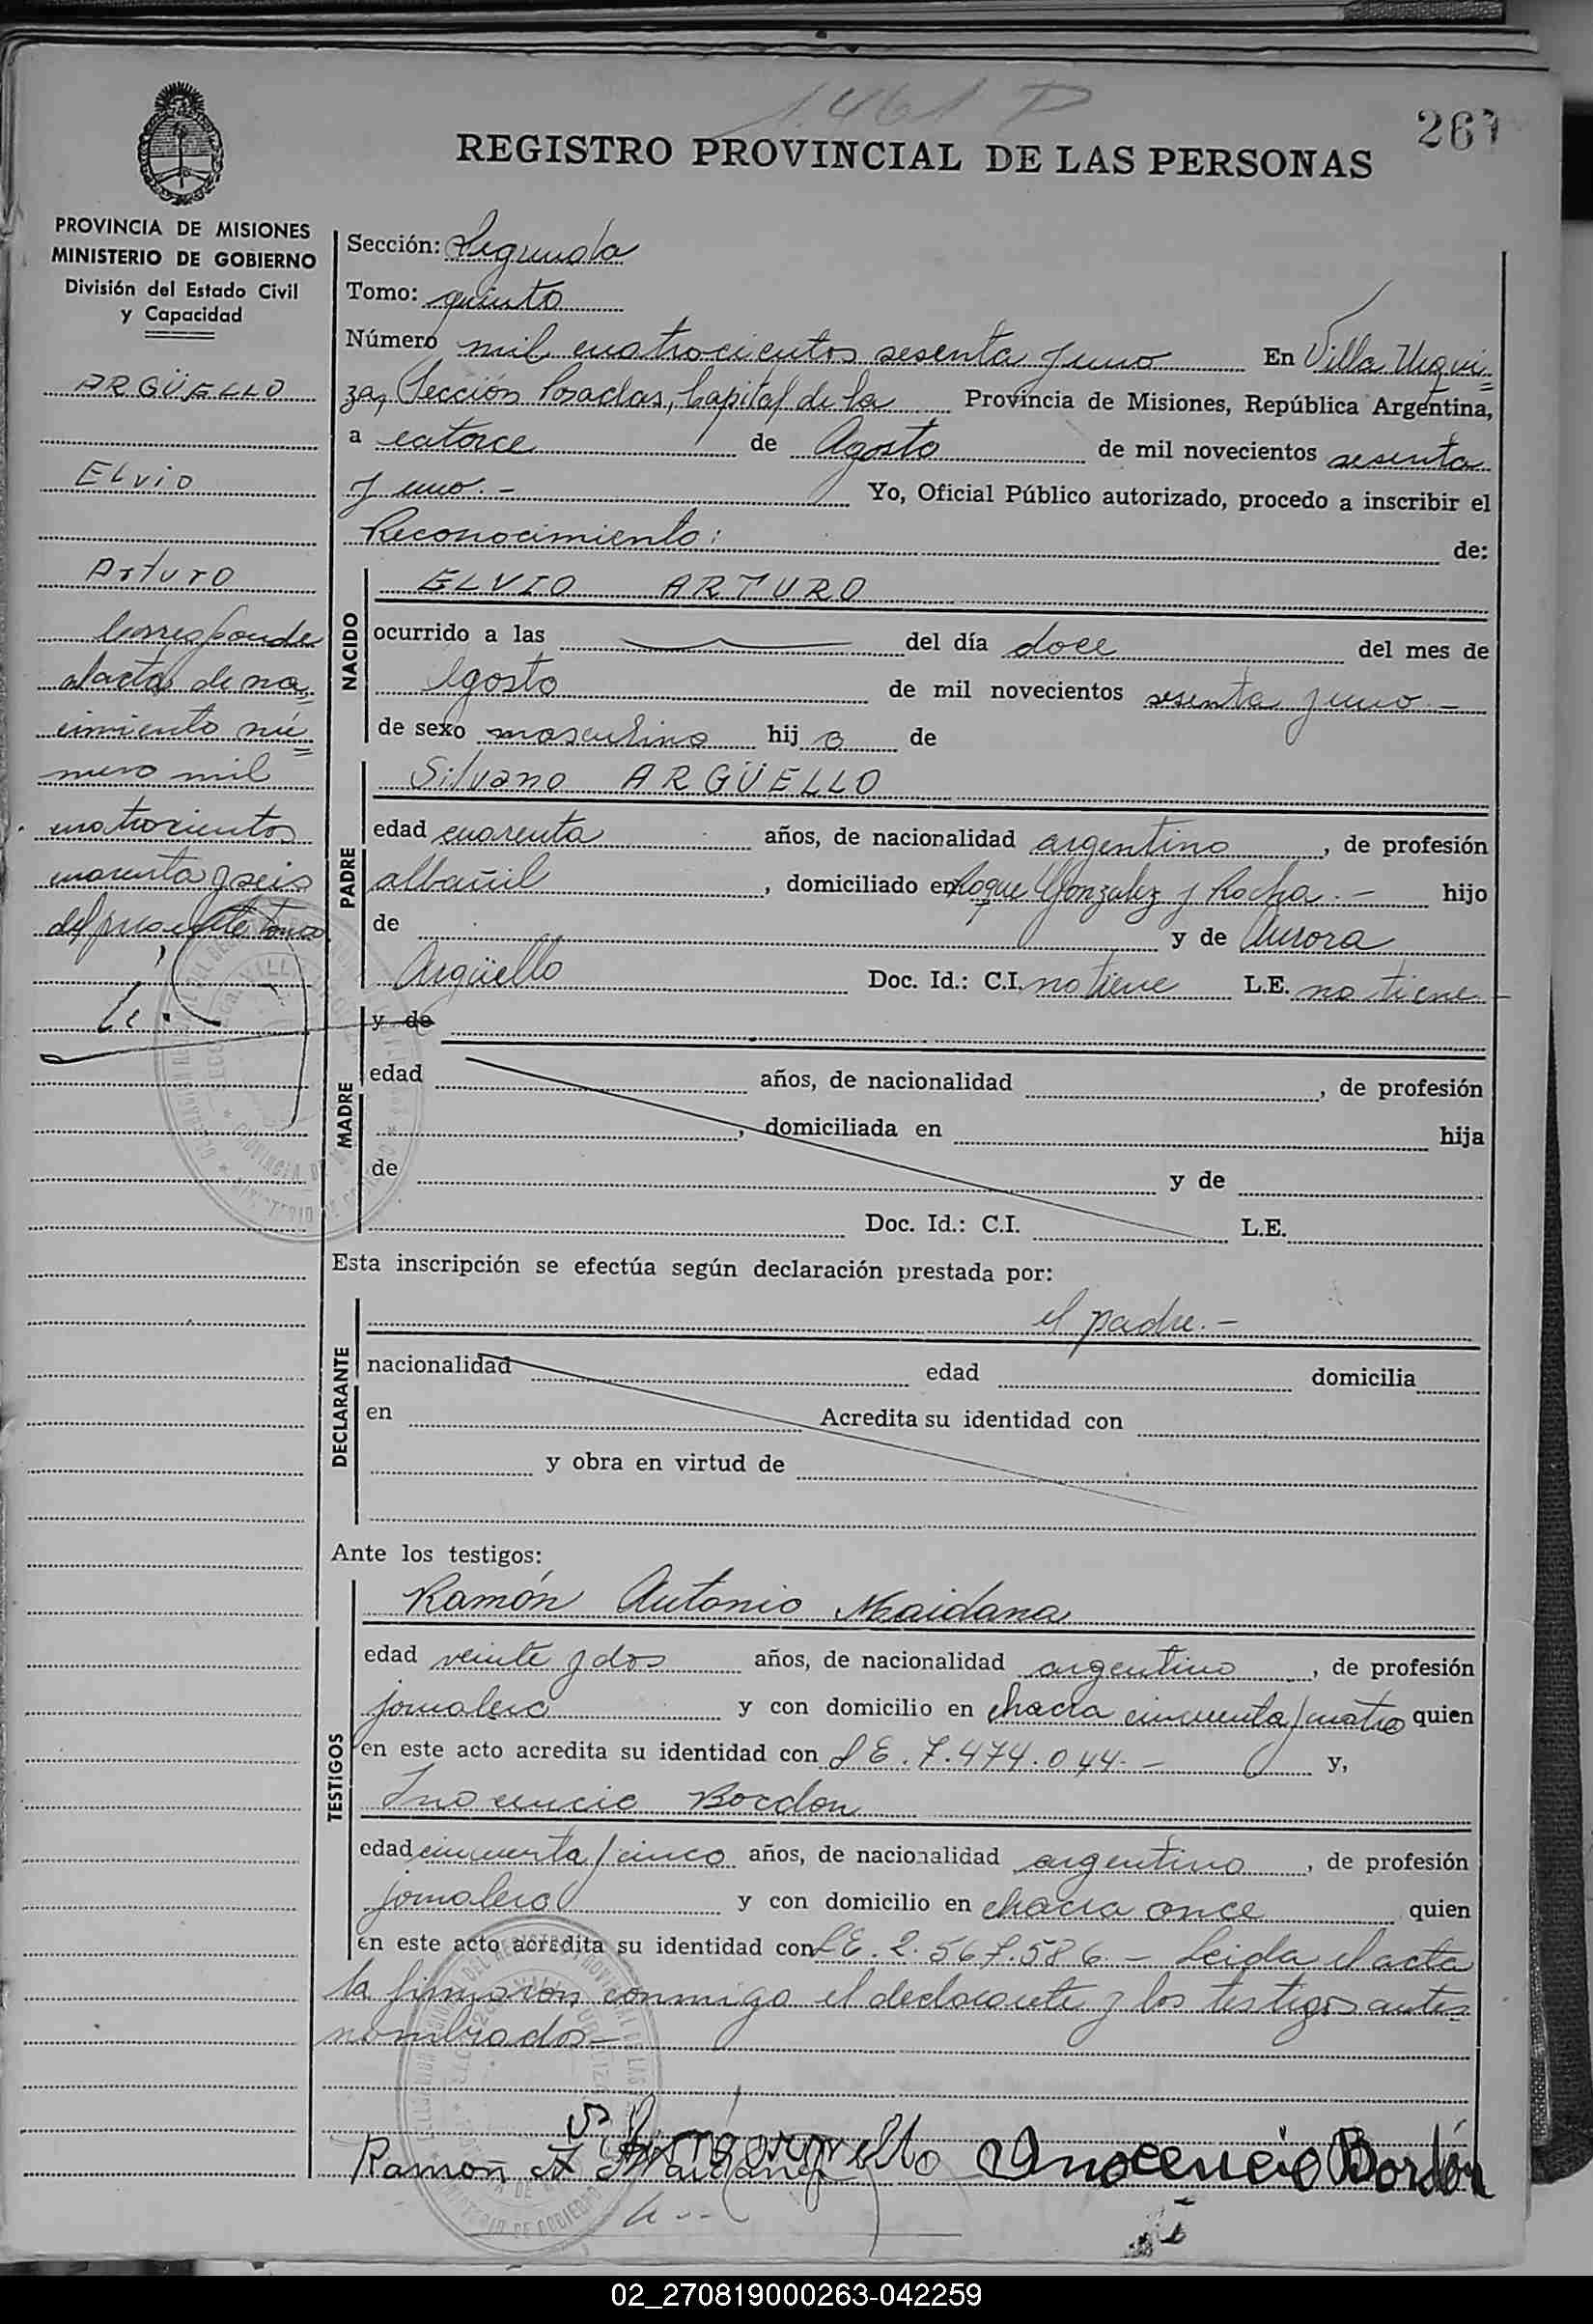 1.461 P
267
REGISTRO PROVINCIAL DE LAS PERSONAS
PROVINCIA DE MISIONES
MINISTERIO DE GOBIERNO
División del Estado Civil
y Capacidad
ARGÜELLO
ELVIO
Arturo
Corresponde
al acta de na=
cimiento nú=
mero mil
cuatrocientos
cuarenta y seis
del presente tomo
Sección: Segunda
Tomo: quinto
Número mil cuatrocientos sesenta y uno En Villa Urqui=
za, Sección Posadas, Capital de la Provincia de Misiones, República Argentina,
a catorce de Agosto de mil novecientos sesenta
y uno.- Yo, Oficial Público autorizado, procedo a inscribir el
Reconocimiento: de:
NACIDO
ELVIO ARTURO
ocurrido a las del día doce del mes de
Agosto de mil novecientos sesenta y uno.-
de sexo masculino hij o de
PADRE
Silvano ARGÜELLO
edad cuarenta años, de nacionalidad argentino, de profesión
albañil, domiciliado en Roque Gonzalez y Rocha.- hijo
de y de Aurora
Argüello Doc. Id.: C.I. no tiene L.E. no tiene-
MADRE
y de
edad años, de nacionalidad , de profesión
, domiciliada en hija
de y de
Doc. Id.: C.I. L.E.
Esta inscripción se efectúa según declaración prestada por:
DECLARANTE
el padre.-
nacionalidad edad domicilia
en Acredita su identidad con
y obra en virtud de
Ante los testigos:
TESTIGOS
Ramón Antonio Maidana
edad veinte y dos años, de nacionalidad argentino, de profesión
jornalero y con domicilio en chacra cincuenta y cuatro quien
en este acto acredita su identidad con L E. 7.474.044.- y,
Inocencio Bordon
edad cincuenta y cinco años, de nacionalidad argentino, de profesión
jornalero y con domicilio en chacra once quien
en este acto acredita su identidad con L E. 2.567.586.- Leida el acta
la firmaron conmigo el declarante y los testigos antes
nombrados-
Ramon A Maidana
Inocencio Bordón
02_270819000263-042259